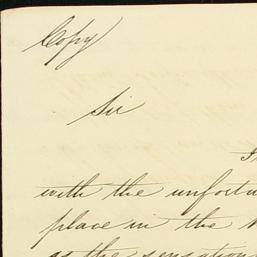 Copy
Sir
with the
place in the
as the sensation